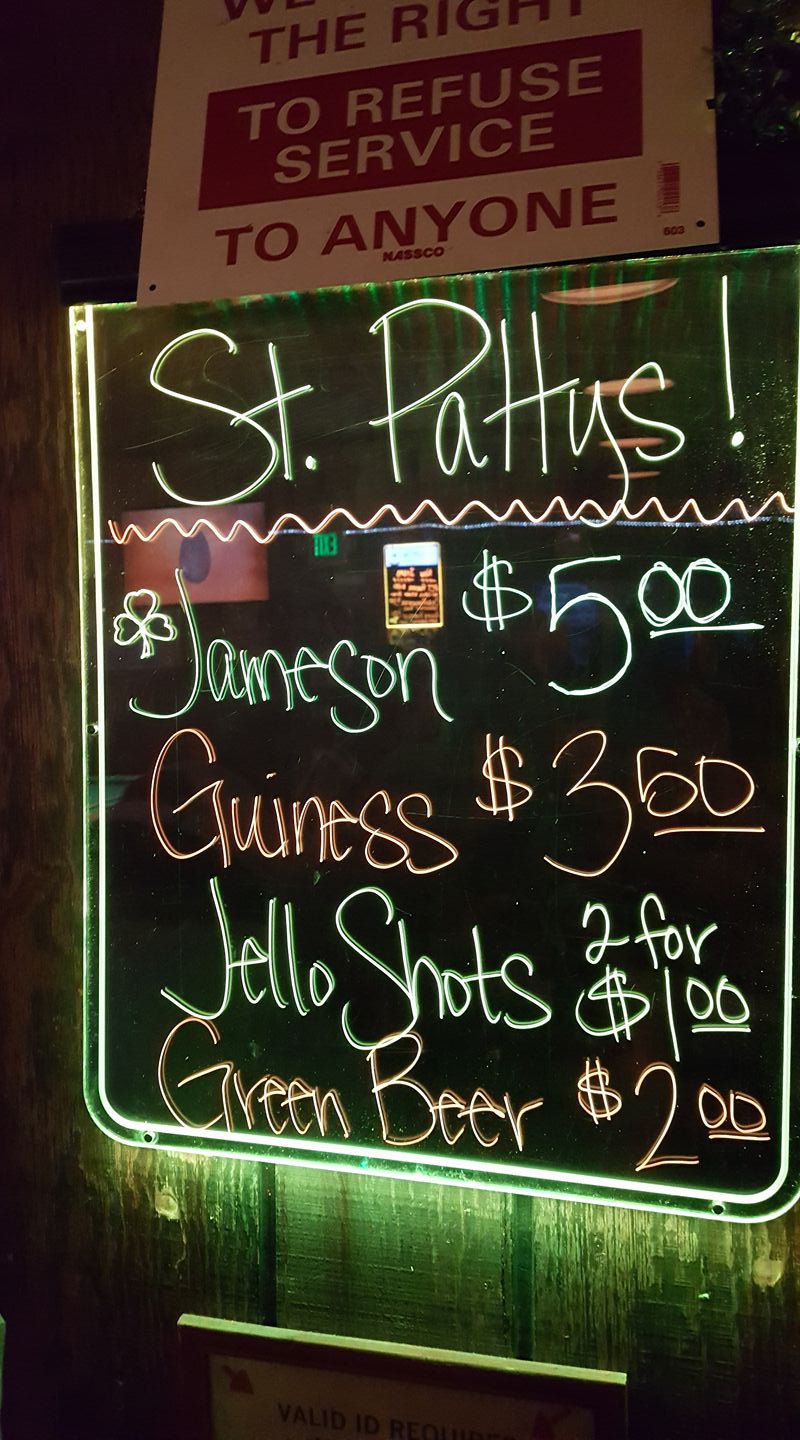 WE
THE RIGHT
TO REFUSE
SERVICE
TO ANYONE
NASSCO
603
St. Pattys!
Jameson $5.00
Guiness $3.50
Jello Shots 2 for $1.00
Green Beer $2.00
VALID ID REQUIRED